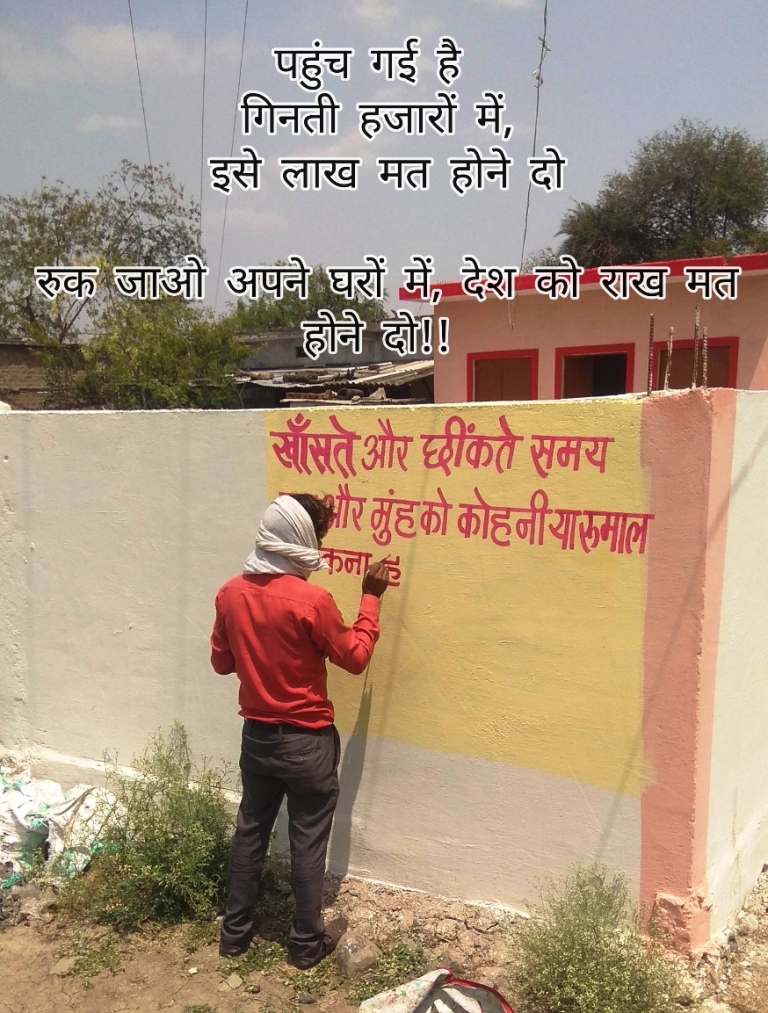 पहुंच गई है
गिनती हजारों में,
इसे लाख मत होने दो
रुक जाओ अपने घरों में, देश को राख मत
होने दो!!
खाँसते और छींकते समय
और मुंह को कोहनी या रूमाल
कना ह